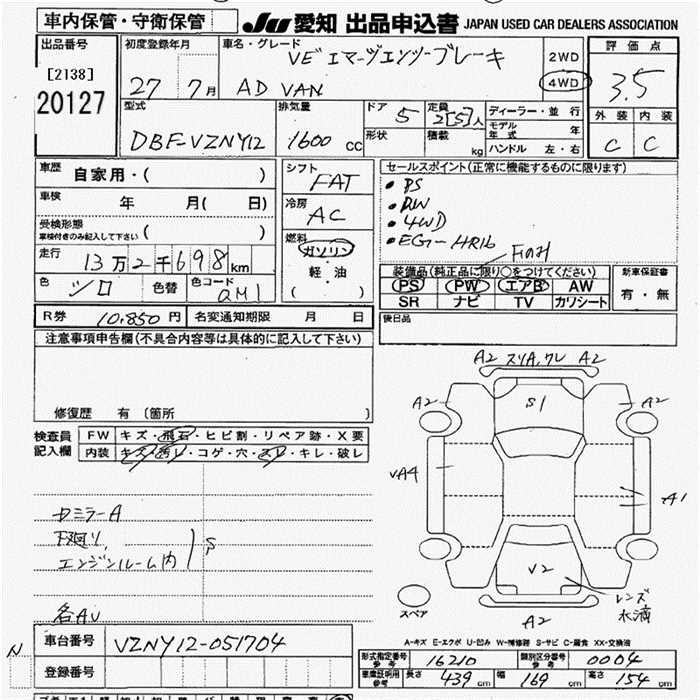 車内保管・守衛保管
JU 愛知 出品申込書 JAPAN USED CAR DEALERS ASSOCIATION
出品番号
[2138]
20127
初度登録年月
27 7月
車名・グレード
VE エマージエンシーブレーキ
AD VAN
2WD
4WD
評価点
3.5
外装 内装
C C
型式
DBF-VZNY12
排気量
1600 cc
ドア 5
形状
定員 2[5]人
積載 kg
ディーラー・並行
モデル年式 年
ハンドル 左・右
車歴 自家用・( )
車検 年 月( 日)
受検形態
車検付きのみ記入して下さい ( )
走行 13万2千698km
色 シロ 色替 色コード QM1
シフト FAT
冷房 AC
燃料
ガソリン
軽・油
( )
セールスポイント(正常に機能するものに限ります)
• PS
• PW
• 4WD
• EG-HR16
Fのみ
装備品(純正品に限り○をつけてください)
PS PW エアB AW
SR ナビ TV カワシート
新車保証書
有・無
R券 10,850円 名変通知期限 月 日
後日品
注意事項申告欄(不具合内容等は具体的に記入して下さい)
修復歴 有〔箇所 〕
検査員記入欄
FW キズ・飛石・ヒビ割・リペア跡・X要
内装 キズ・汚レ・コゲ・穴・スレ・キレ・破レ
ミラーA
下廻り
エンジンルーム内
S
各AU
A2 スリA,ワレ A2
A2 S1 A2
UA4
A1
V2
レンズ
水滴
A2
スペア
A-キズ E-エクボ U-凹み W-補修跡 S-サビ C-腐食 XX-交換済
N
車台番号 VZNY12-051704
登録番号
形式指定番号 参考 16210
類別区分番号 参考 0004
車庫証明用 参考 長さ 439cm 幅 169cm 高さ 154cm